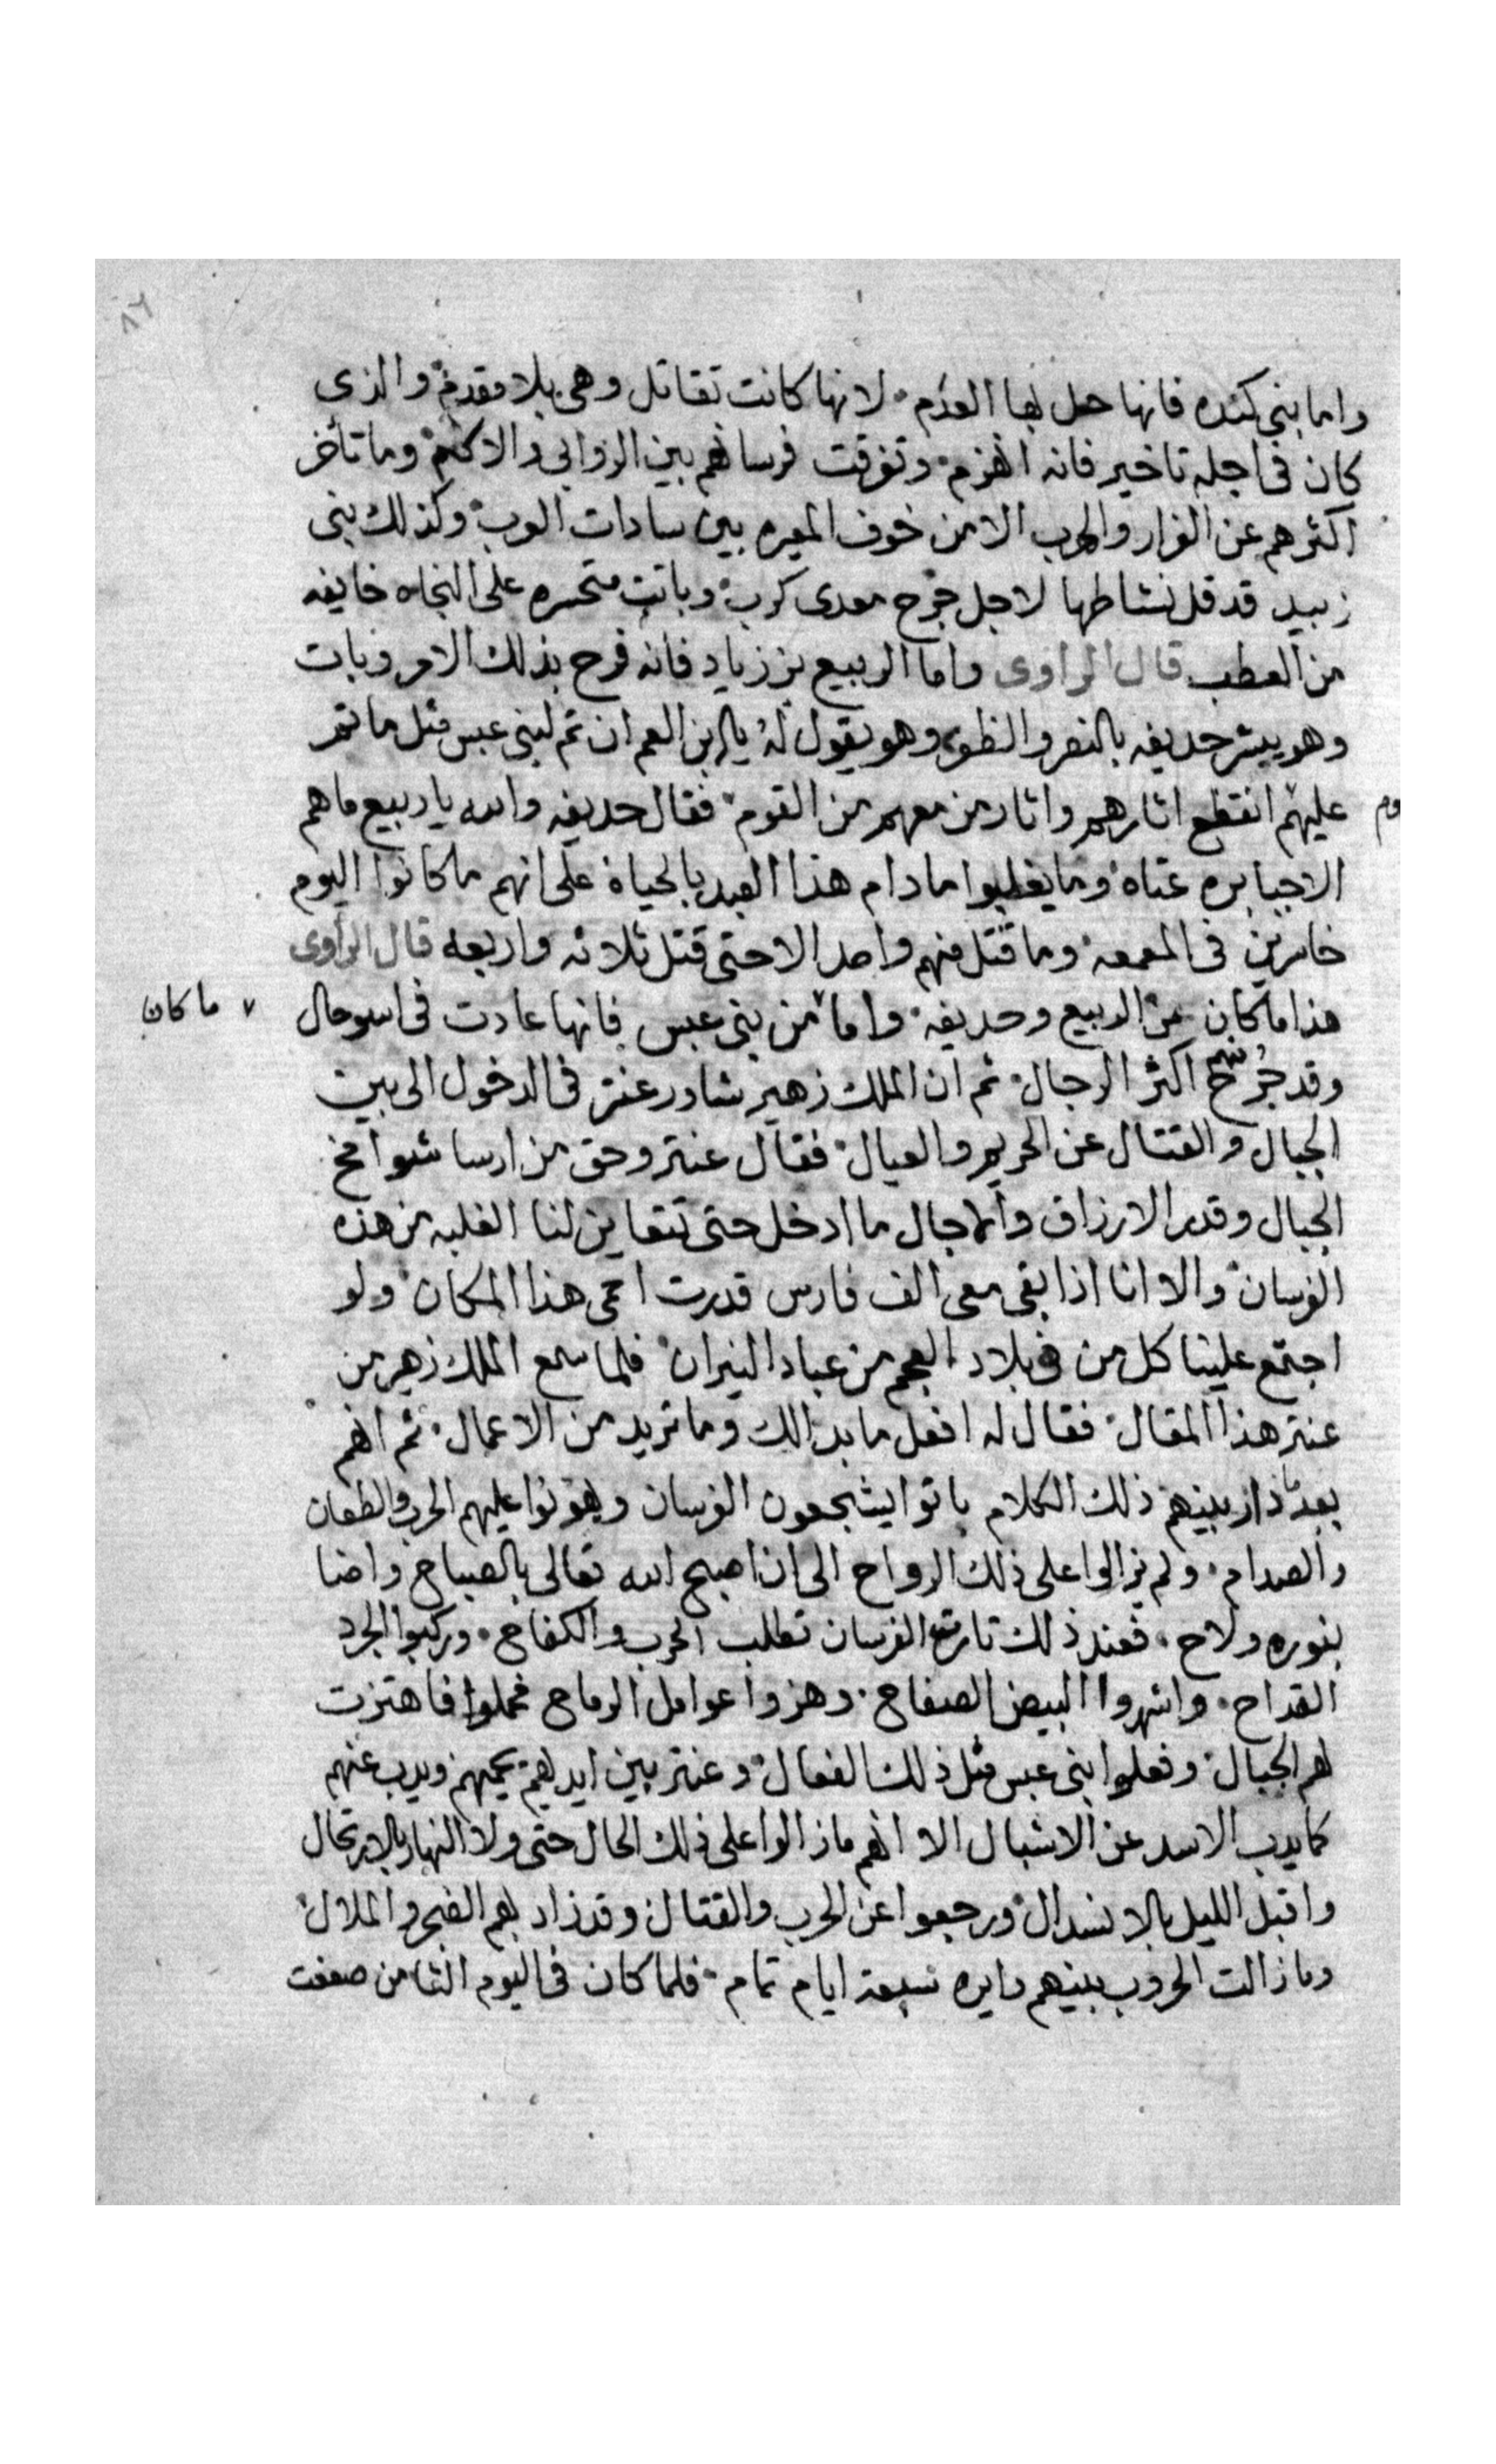 ٨٦
واما بنى كنده فانها حل بها العدم لانها كانت تقاتل وهى بلا مقدم والذى
كان فى اجله تاخير فانه انهزم وتفرقت فرسانهم بين الروابى والاكم وما تأخر
اكثرهم عن الفرار والهرب الا من خوف المعيره بين سادات العرب وكذلك بنى
زبيد قد قل نشاطها لاجل جرح معدى كرب وباتت متحسره على النجاه خايفه
من العطب قال الراوى واما الربيع بن زياد فانه فرح بذلك الامر وبات
وهو يبشر حديفه بالنصر والظفر وهو يقول له يا ابن العم ان تم لبنى عبس مثل ما تم
عليهم انقطع اثارهم واثار من معهم من القوم فقال حديفه والله يا ربيع ما هم
الا جبابره عتاه وما يغلبوا ما دام هذا العبد بالحياة على انهم ما كانوا اليوم
خاسرين فى المعمعه وما قتل منهم واحد الا حتى قتل ثلاثه واربعه قال الراوى
هذا ما كان من الربيع وحديفه واما من بنى عبس فانها عادت فى اسو حال
ما كان
وقد جرح اكثر الرجال ثم ان الملك زهير شاور عنتر فى الدخول الى بين
الجبال والقتال عن الحريم والعيال فقال عنتر وحق من ارسا شوامخ
الجبال وقدر الارزاق والاجال ما ادخل حتى تتعاين لنا الغلبه من هذه
الفرسان والا انا اذا بقى معى الف فارس قدرت احمى هذا المكان ولو
اجتمع علينا كل من فى بلاد العجم من عباد النيران فلما سمع الملك زهير من
عنتر هذا المقال فقال له افعل ما بدالك وما تريد من الاعمال ثم انهم
بعد ما دار بينهم ذلك الكلام باتوا يشجعون الفرسان ويهونوا عليهم الحرب والطعان
والصدام ولم يزالوا على ذلك الرواح الى ان اصبح الله تعالى بالصباح واضا
بنوره ولاح فعند ذلك تارت الفرسان تطلب الحرب والكفاح وركبوا الجرد
القداح واشهروا البيض الصفاح وهزوا عوامل الرماح فحملوا فاهتزت
لهم الجبال وفعلوا بنى عبس مثل ذلك الفعال وعنتر بين ايديهم يحميهم ويدب عنهم
كما يدب الاسد عن الاشبال الا انهم ما زالوا على ذلك الحال حتى ولا النهار بالارتحال
واقبل الليل بالانسدال ورجعوا عن الحرب والقتال وقد زاد بهم الضجر والملال
وما زالت الحروب بينهم دايره سبعة ايام تمام فلما كان فى اليوم الثامن ضعفت